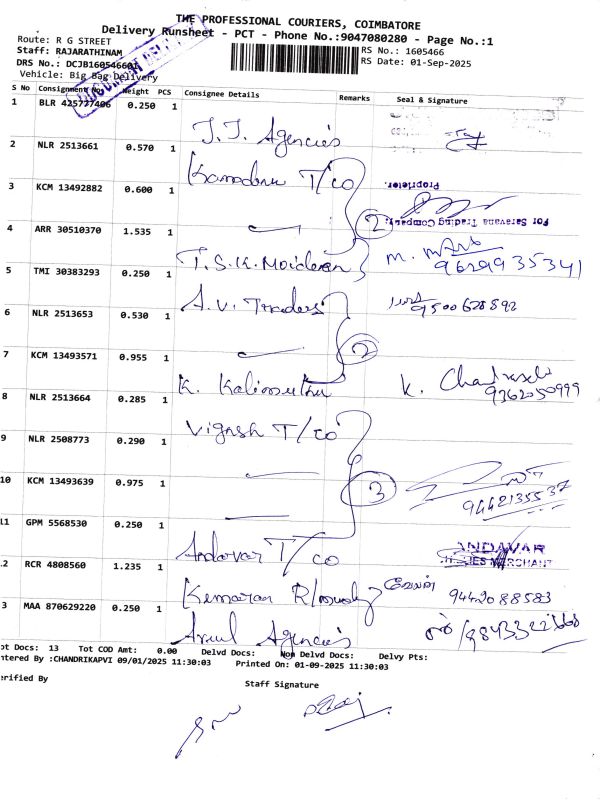 THE PROFESSIONAL COURIERS, COIMBATORE
Delivery Runsheet - PCT - Phone No.:9047080280 - Page No.:1
Route: R G STREET
Staff: RAJARATHINAM
RS No.: 1605466
DRS No.: DCJB160546601
RS Date: 01-Sep-2025
Vehicle: Big Bag Delivery
DOCUMENT DELIVERY
S No Consignment No. Weight PCS Consignee Details Remarks Seal & Signature
1 BLR 425727406 0.250 1 J.J. Agencies
2 NLR 2513661 0.570 1 Kamadenu T/co
Proprietor.
3 KCM 13492882 0.600 1
For Saravana Trading Company.
2
4 ARR 30510370 1.535 1 T.S.K. Moideen M.
9629935341
5 TMI 30383293 0.250 1 A.V. Traders 9500628892
6 NLR 2513653 0.530 1
2
7 KCM 13493571 0.955 1 K. Kalimuthu K.
9362050999
8 NLR 2513664 0.285 1 Vignesh T/co
9 NLR 2508773 0.290 1
10 KCM 13493639 0.975 1 3
9442135537
11 GPM 5568530 0.250 1 Andavar T/co ANDAVAR
MERCHANT
12 RCR 4808560 1.235 1 Kumaran 9442088583
13 MAA 870629220 0.250 1 Arul Agencies 9843322668
ot Docs: 13 Tot COD Amt: 0.00 Delvd Docs: Non Delvd Docs: Delvy Pts:
ntered By :CHANDRIKAPVI 09/01/2025 11:30:03 Printed On: 01-09-2025 11:30:03
erified By Staff Signature